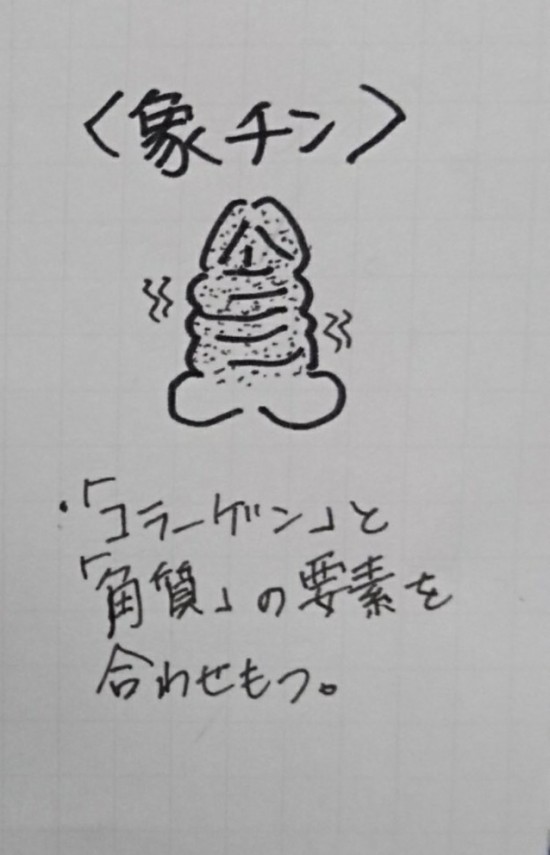 〈象チン〉
・「コラーゲン」と
「角質」の要素を
合わせもつ。